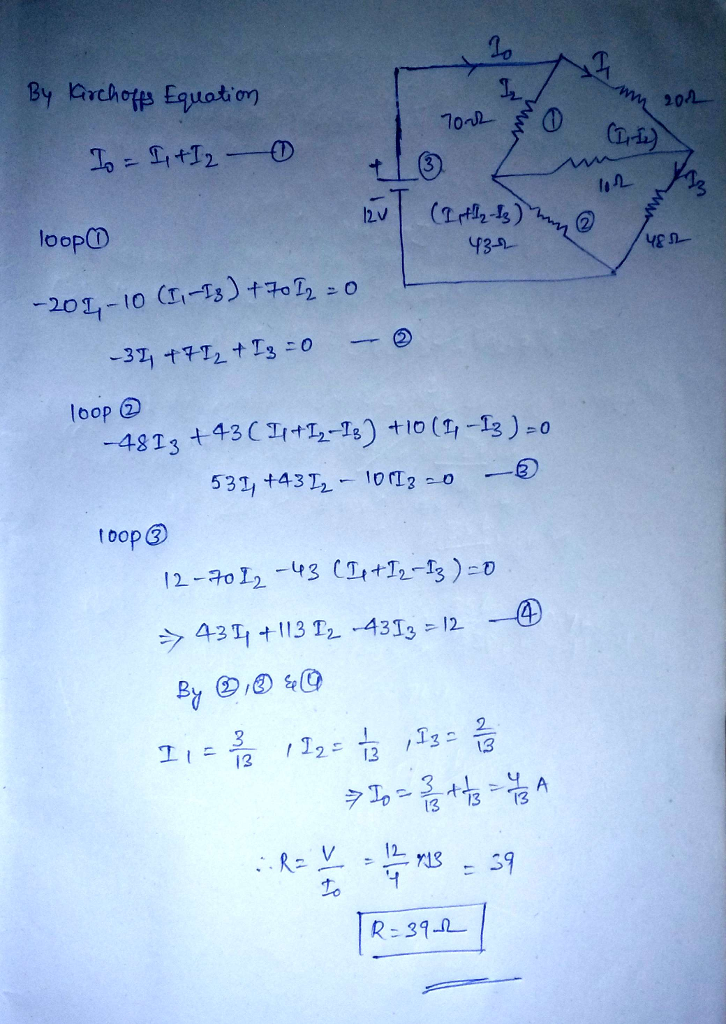 I₀
I₁
By Kirchoffs Equation
I₂
20Ω
70Ω
①
(I₁-I₂)
I₀ = I₁+I₂ — ①
+
③
10Ω
I₃
12V
(I₁+I₂-I₃)
②
loop①
43Ω
48Ω
-20I₁-10 (I₁-I₃) +70I₂ = 0
-3I₁ +7I₂ + I₃ = 0 — ②
loop ②
-48I₃ +43(I₁+I₂-I₃) +10(I₁-I₃)=0
53I₁ +43I₂ - 101I₃ =0 — ③
loop③
12-70I₂ -43 (I₁+I₂-I₃)=0
⇒ 43I₁ +113 I₂ -43I₃ =12 — ④
By ②,③ & ④
I₁ = 3/13 , I₂ = 1/13 , I₃ = 2/13
⇒ I₀ = 3/13 + 1/13 = 4/13 A
∴ R = V/I₀ = 12/4 ×13 = 39
R = 39Ω